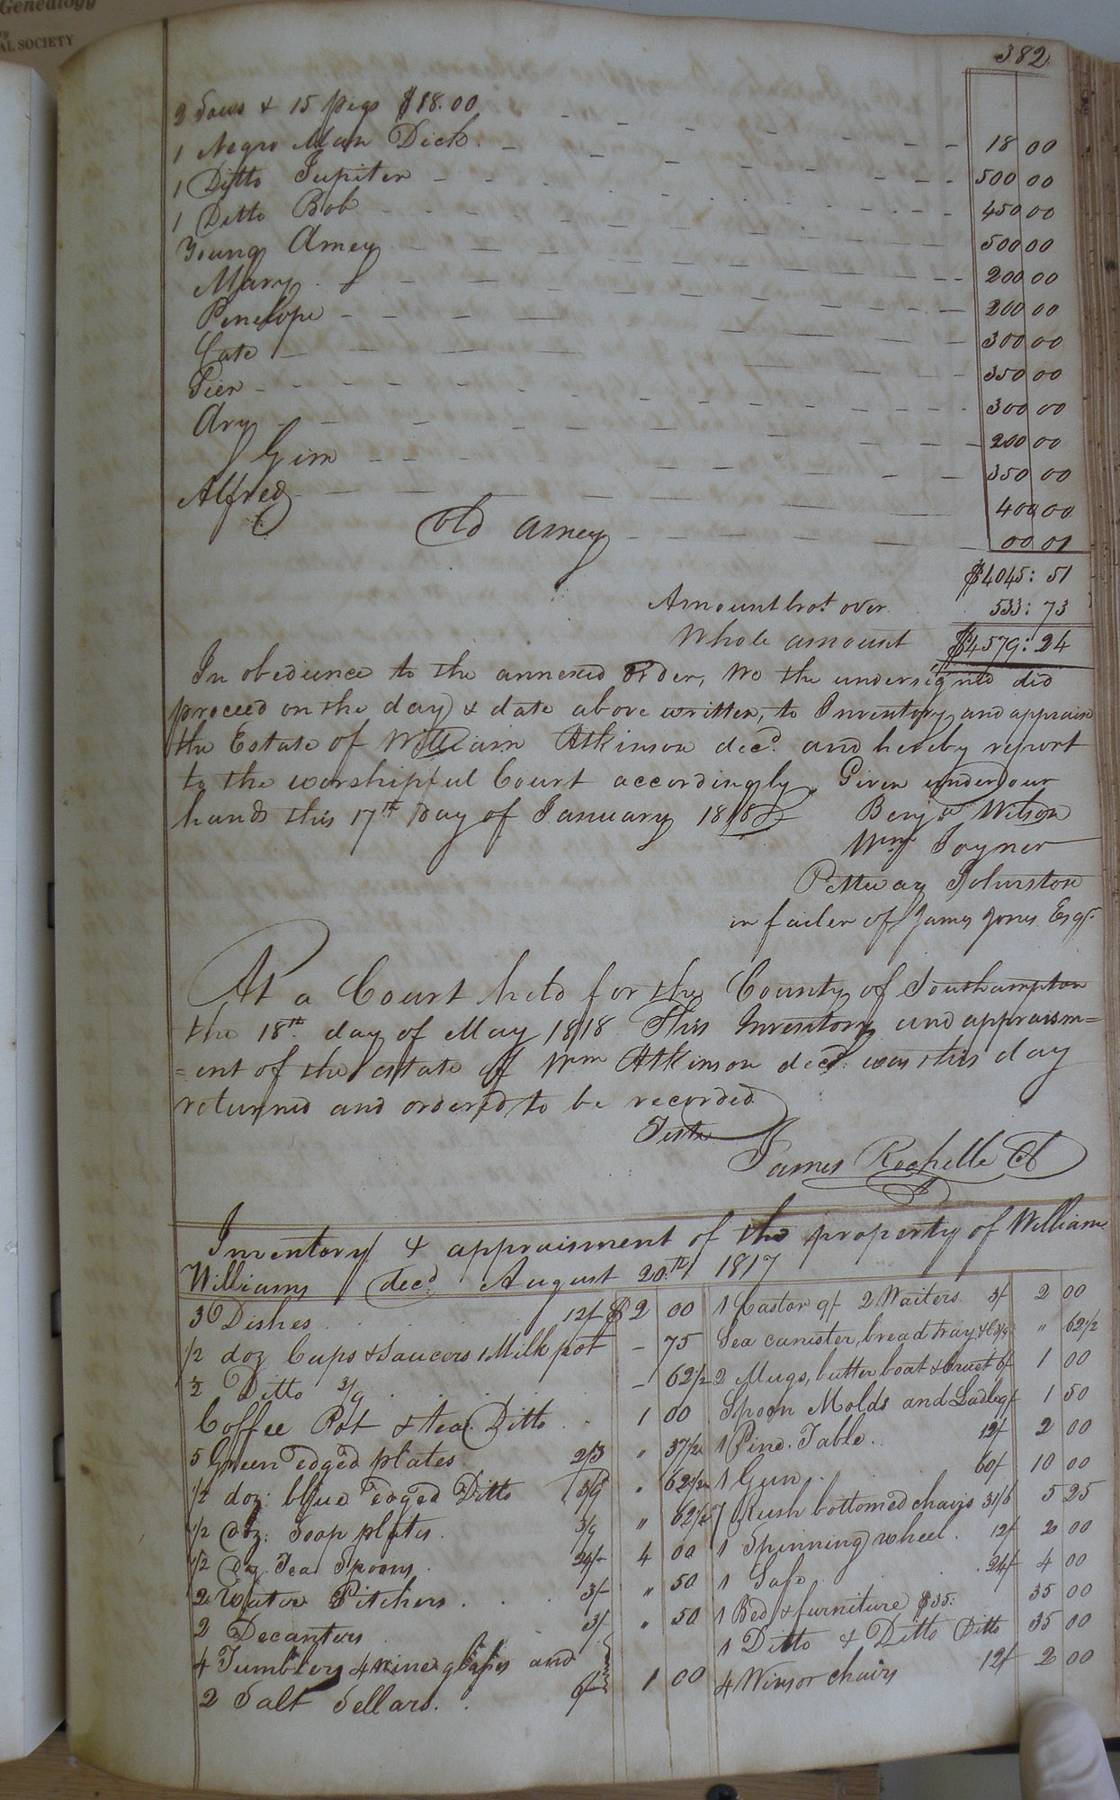 Genealogy
AL SOCIETY
382
3 Sows & 15 pigs $18.00 - - - 18 00
1 Negro Man Dick - - - 500 00
1 Ditto Jupiter - - - 450 00
1 Ditto Bob - - - 500 00
Young Amey - - - 200 00
Mary - - - 200 00
Penelope - - - 300 00
Cate - - - 350 00
Pier - - - 300 00
Ary - - - 200 00
Gim - - - 350 00
Alfred - - - 400 00
Old Amey - - - 00 01
$4045: 51
Amount brot over 533: 73
Whole amount $4579: 24
In obedience to the annexed Order, We the undersigned did
proceed on the day & date above written, to Inventory and appraise
the Estate of William Atkinson decd. and hereby report
to the worshipful Court accordingly. Given under our
hands this 17th Day of January 1818
Benj Wilson
Wm Joyner
Pettway Johnston
in failer of James Jones Esqr
At a Court held for the County of Southampton
the 18th day of May 1818 This Inventory and appraism=
=ent of the estate of Wm Atkinson decd. was this day
returned and ordered to be recorded
Teste
James Rochelle Cl
Inventory & appraisment of the property of William
Williams decd August 20th 1817
3 Dishes 12/ $2 00
1/2 doz Cups & Saucers 1 Milk pot - 75
1/2 Ditto 3/9 - 62 1/2
Coffee Pot & tea Ditto 1 00
5 Green edged plates 2/3 " 37 1/2
1/2 doz: blue edged Ditto 3/9 " 62 1/2
1/2 doz: Soap plates 3/9 " 62 1/2
1/2 dz Tea Spoons 24/ 4 00
2 Water Pitchers 3/ " 50
2 Decanters 3/ " 50
4 Tumblers 4 wine glasses and
2 Salt Sellars 6/ 1 00
1 Castor 9/ 2 Waiters 3/ 2 00
Tea canister, bread tray &c 3/9 " 62 1/2
2 Mugs, butter boat & Cruet 6/ 1 00
Spoon Molds and Ladle 9/ 1 50
1 Pine Table 12/ 2 00
1 Gun 60/ 10 00
7 Rush bottomed chairs 31/6 5 25
1 Spinning wheel 12/ 2 00
1 Safe 24/ 4 00
1 Bed & furniture $35: 35 00
1 Ditto & Ditto Ditto 35 00
4 Winsor chairs 12/ 2 00